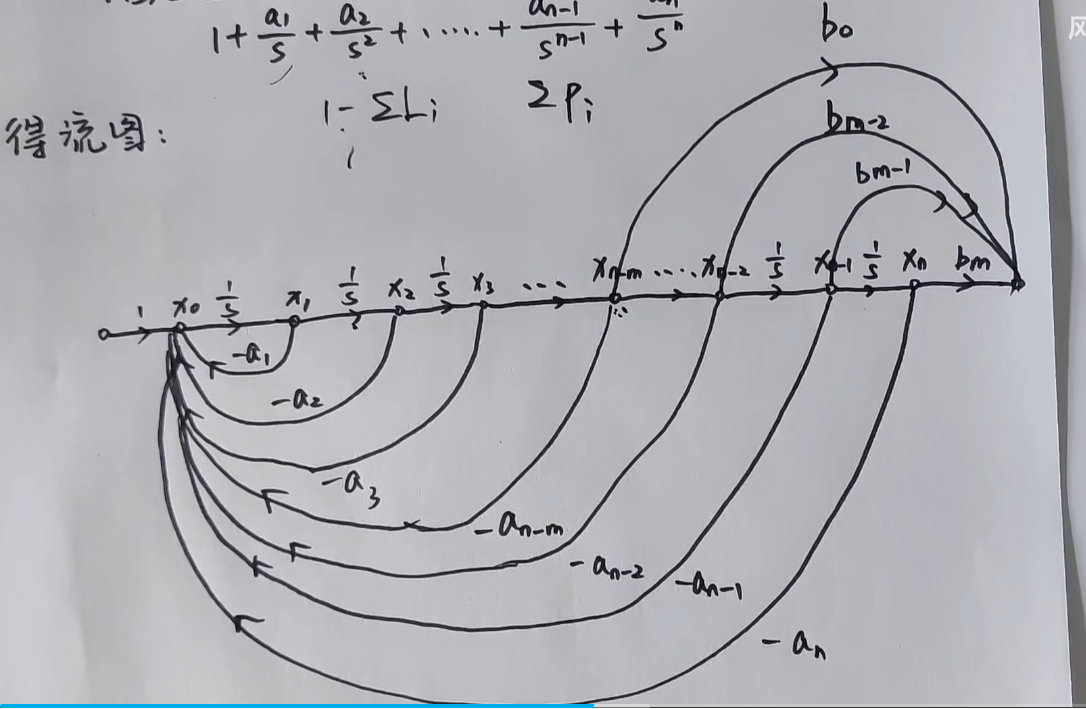 1 + a₁/s + a₂/s² + ..... + aₙ₋₁/sⁿ⁻¹ + aₙ/sⁿ
1 - ΣLᵢ ΣPᵢ
得流图:
b₀
bₘ₋₂
bₘ₋₁
1 x₀ 1/s x₁ 1/s x₂ 1/s x₃ ... xₙ₋ₘ .... xₙ₋₂ 1/s xₙ₋₁ 1/s xₙ bₘ
-a₁
-a₂
-a₃
-aₙ₋ₘ
-aₙ₋₂
-aₙ₋₁
-aₙ